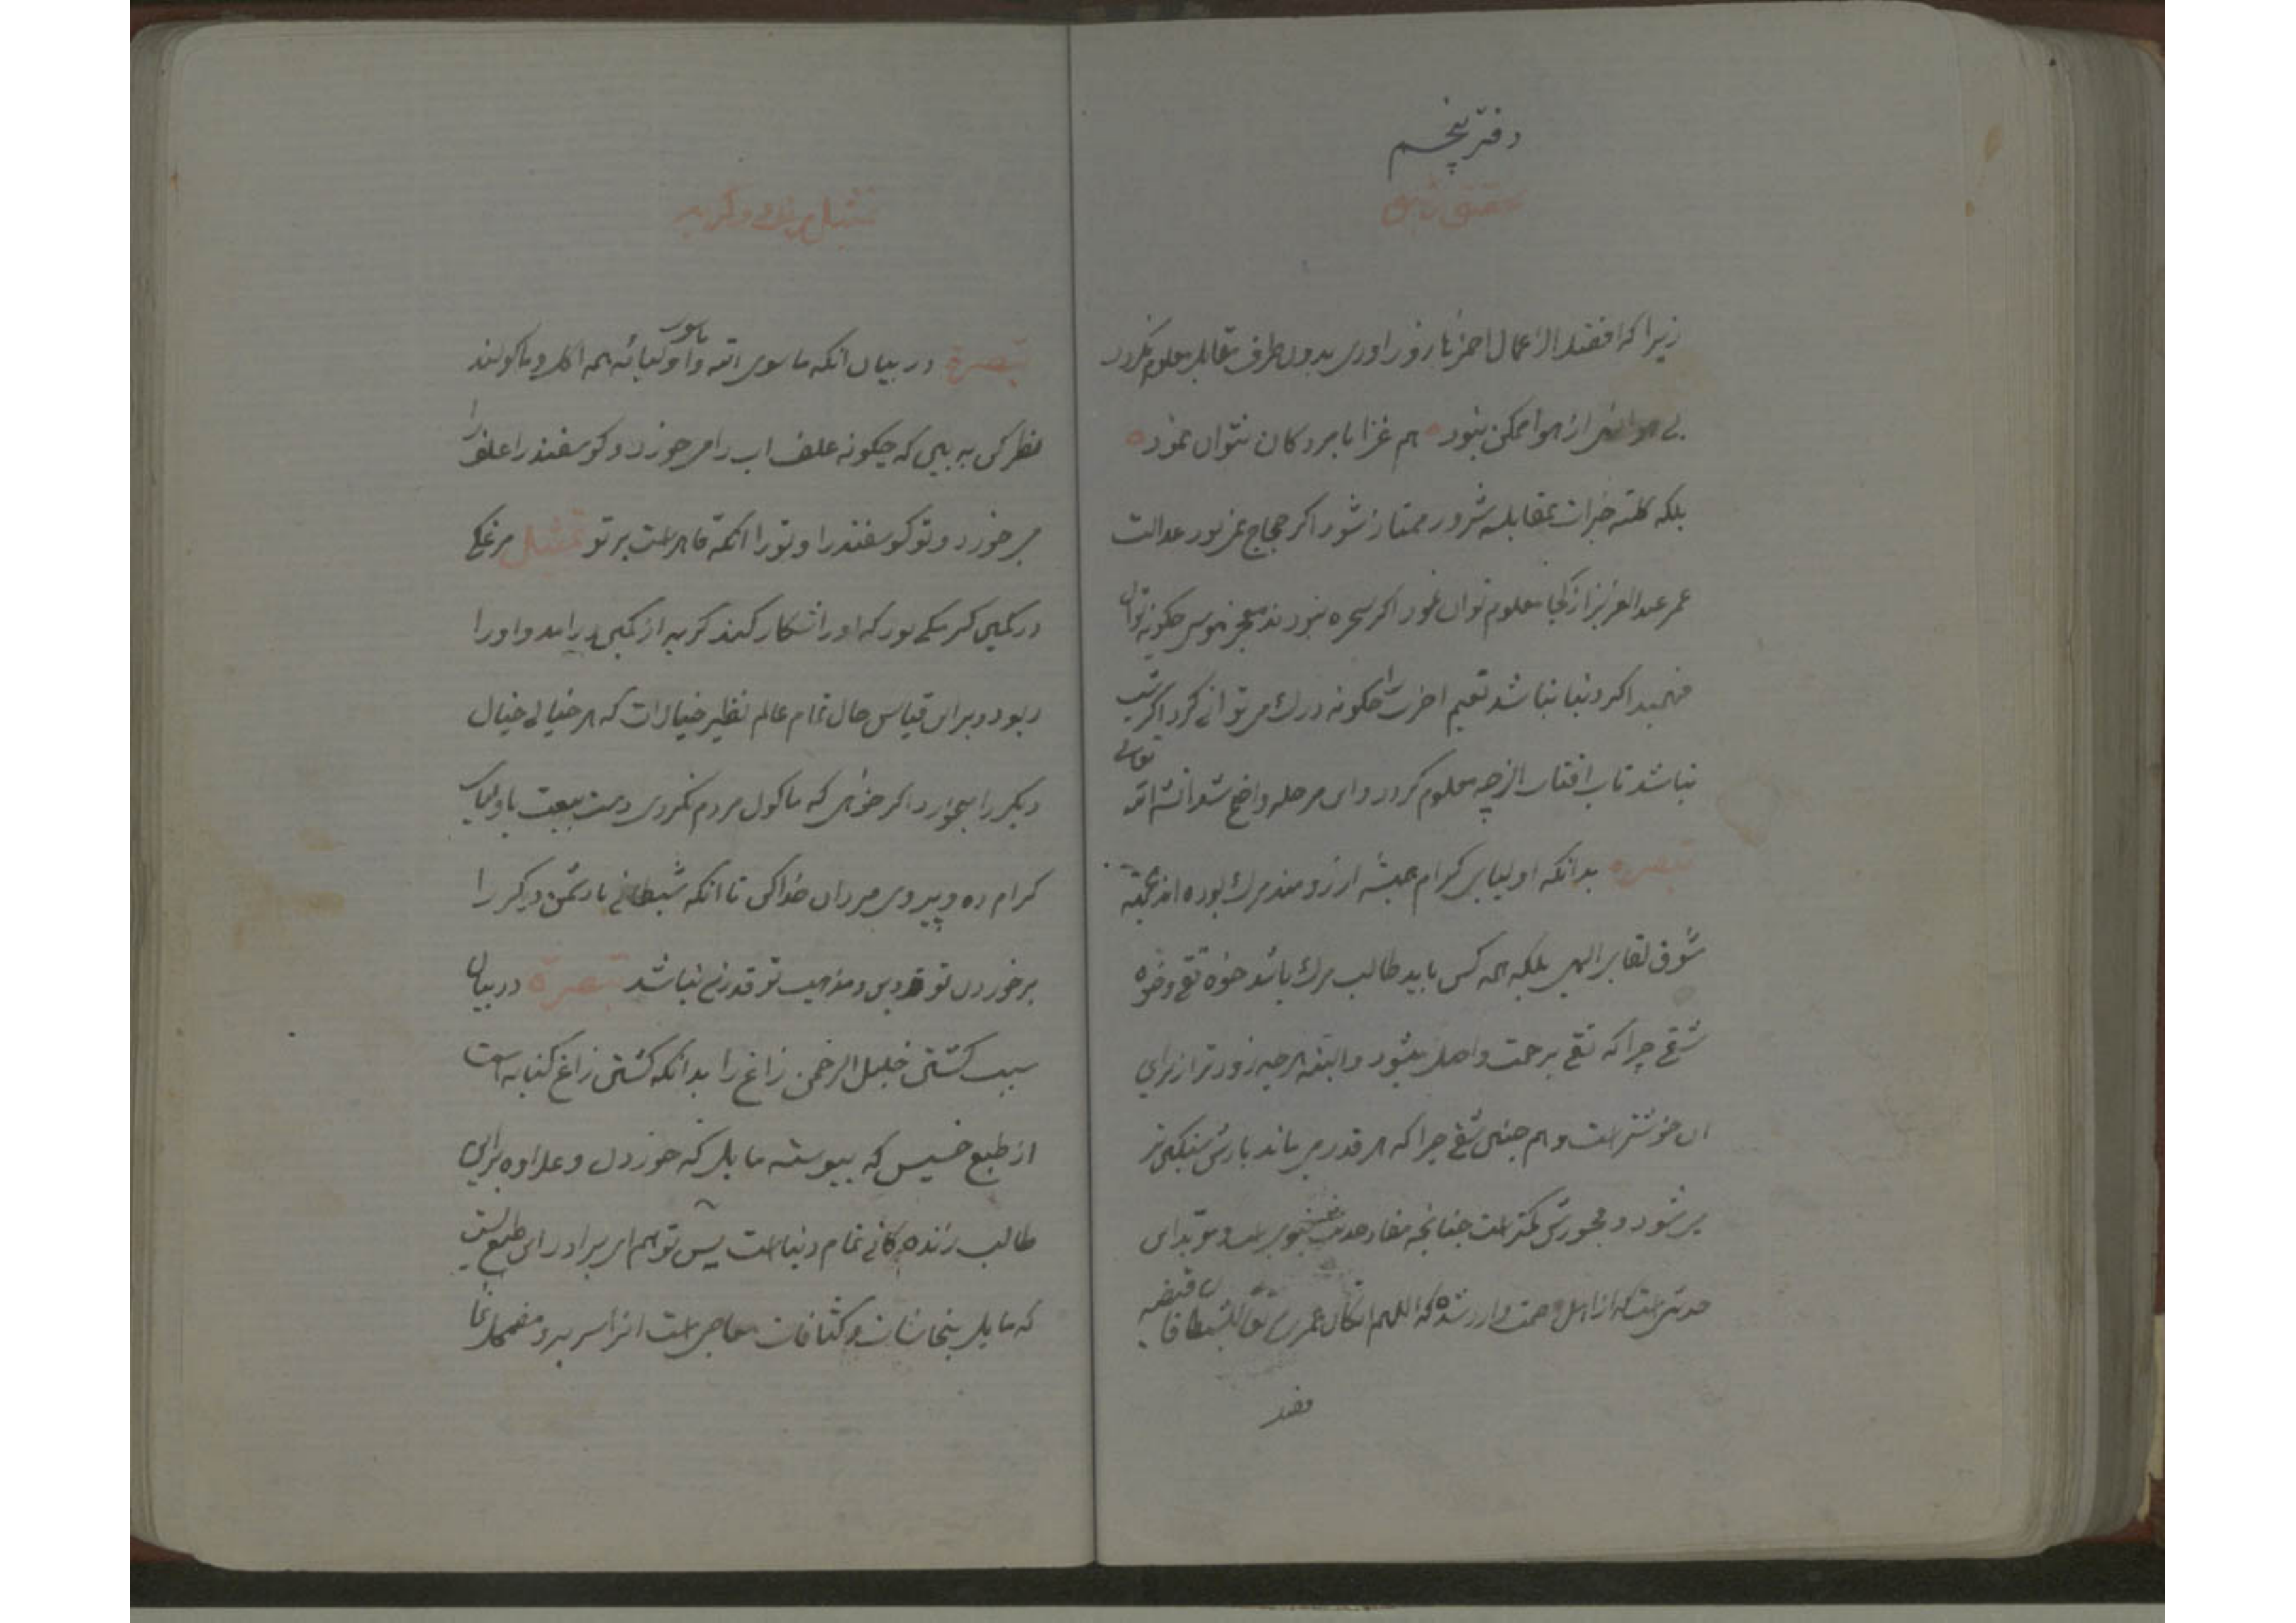 دفتر پنجم
زیرا که افضل الاعمال احمزها زور اوری بدون طرف مقابل معلوم نکردد
بی هوا نهی از هوا ممکن نبود هم غزا با مردکان نتوان نمود
بلکه کلیه خیرات بمقابله شرور ممتاز شود اکر حجاج نمی بود عدالت
عمر عبدالعزیز از کجا معلوم توان نمود اکر سحره نبودند معجز موسی چکونه توان
فهمید اکر دنیا نباشد نعیم اخرت را چکونه درک می توانی کرد اکر شب
نباشد تاب افتاب از چه معلوم کردد و این مرحله واضح شد انشاالله تعالی
تبصره بدانکه اولیای کرام همیشه ارزومند مرک بوده اند بجهة
شوق لقای الهی بلکه همه کس باید طالب مرک باشد خواه تقی و خواه
شقی چرا که تقی برحمت واصل میشود و البته هرچه زودتر از برای
ان خوشتر است و هم چنین شقی چرا که هر قدر می ماند بارش سنکین تر
می شود و مهجورتر کمتر است چنانچه مفاد حدیث نبوی است و مؤید این
حدیثی است که از اهل عصمت وارد شده که اللهم انکان عمری مرتعا للشیطان فاقبضنیه
تمثیل مرغک و کربه
تبصرة در بیان انکه ما سوی الله و اولیائه همه اکل و ماکولند
نظر کن به بین که چکونه علف اب را می خورد و کوسفند علف را
می خورد و تو کوسفند را و تو را انکه قاهر است بر تو تمثیل مرغکی
در کمین کرمکی بود که او را شکار کند کربه از کمین در امد و او را
ربود و برین قیاس حال تمام عالم نظیر خیالات که هر خیالی خیال
دیکر را بخورد اکر خواهی که ماکول مردم نکردی دست بیعت باولیاء
کرام ده و پیروی مردان خدا کن تا انکه شیطانی یا دشمن دیکر را
بر خوردن تو و دین و مذهب تو قدرتی نباشد تبصرة در بیان
سبب کشتن خلیل الرحمن زاغ را بدانکه کشتن زاغ کنایه است
از طبع خسیس که پیوسته مایل که خوردن و علاوه برای
طالب زنده کانی تمام دنیا است پس تو هم ای برادر این طبع
که مایل بنجاسات و کثافات معاصی است انرا سر ببر و مضمحل نما